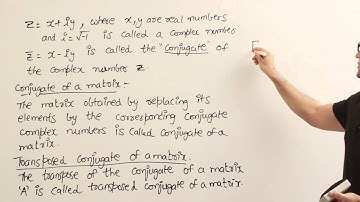 z = x+iy, where x,y are real numbers
and i=√-1 is called a complex number
z̅ = x-iy is called the "conjugate" of
the complex number z.
Conjugate of a matrix:-
The matrix obtained by replacing its
elements by the corresponding conjugate
complex numbers is called conjugate of a
matrix.
Transposed conjugate of a matrix:-
The transpose of the conjugate of a matrix
'A' is called transposed conjugate of a matrix.